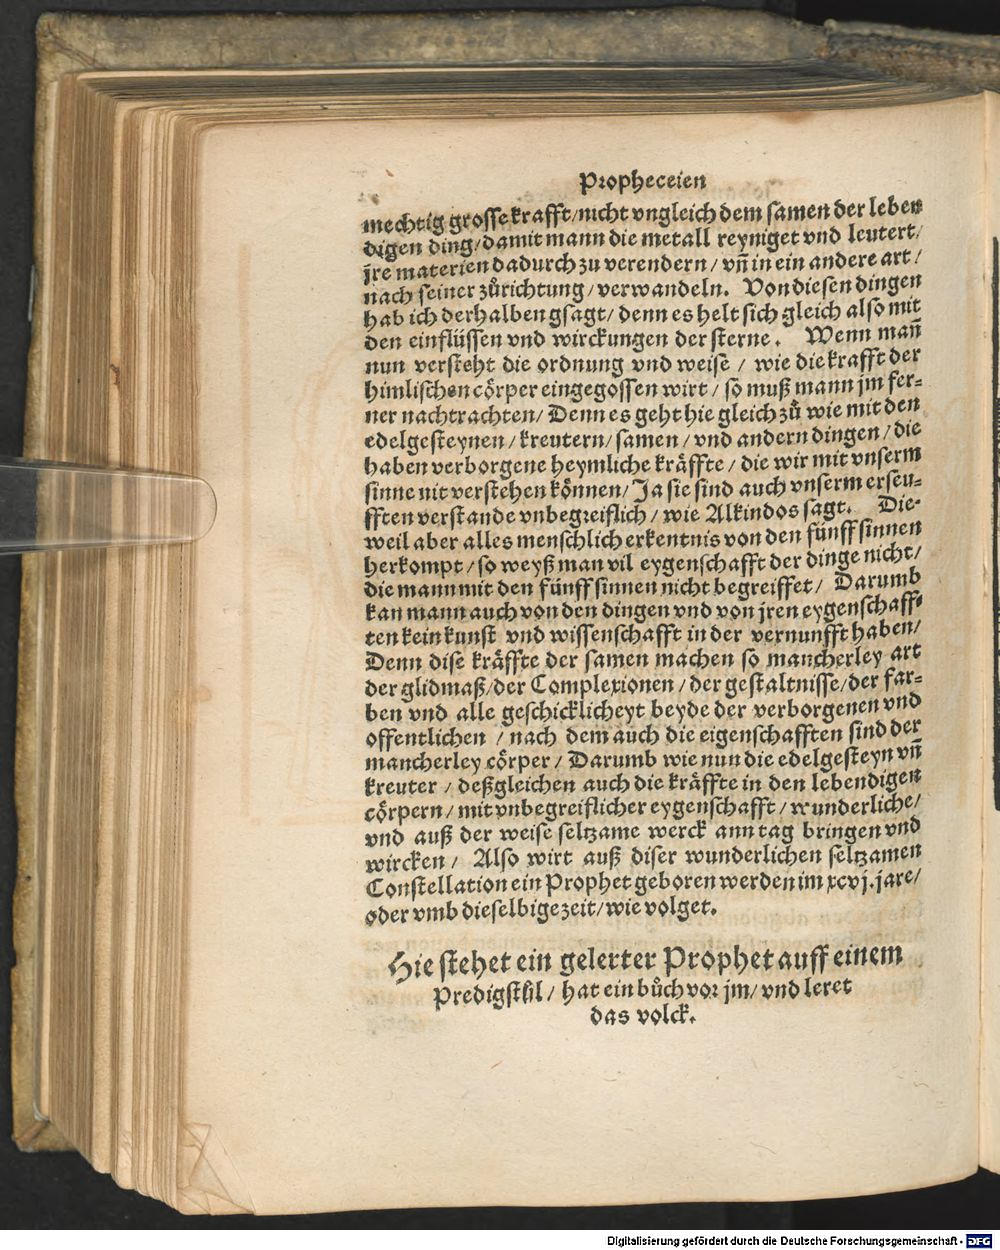 Propheceien
mechtig grosse krafft/nicht vngleich dem samen der leben
digen ding/damit mann die metall reyniget vnd leutert/
jre materien dadurch zu verendern/ vn̄ in ein andere art/
nach seiner zůrichtung/verwandeln. Von diesen dingen
hab ich derhalben gsagt/ denn es helt sich gleich also mit
den einflüssen vnd wirckungen der sterne. Wenn man̄
nun versteht die ordnung vnd weise / wie die krafft der
himlischen cörper eingegossen wirt/ so muß mann jm fer⸗
ner nachtrachten/ Denn es geht hie gleich zů wie mit den
edelgesteynen/kreutern/samen/ vnd andern dingen/die
haben verborgene heymliche kräffte/ die wir mit vnserm
sinne nit verstehen können/ Ja sie sind auch vnserm erseu⸗
fften verstande vnbegreiflich/ wie Alkindos sagt. Die⸗
weil aber alles menschlich erkentnis von den fünff sinnen
herkompt/so weyß man vil eygenschafft der dinge nicht/
die mann mit den fünff sinnen nicht begreiffet/ Darumb
kan mann auch von den dingen vnd von jren eygenschaff⸗
ten kein kunst vnd wissenschafft in der vernunfft haben/
Denn dise kräffte der samen machen so mancherley art
der glidmaß/der Complexionen/der gestaltnisse/der far⸗
ben vnd alle geschicklicheyt beyde der verborgenen vnd
offentlichen / nach dem auch die eigenschafften sind der
mancherley cörper/ Darumb wie nun die edelgesteyn vn̄
kreuter / deßgleichen auch die kräffte in den lebendigen
cörpern/ mit vnbegreiflicher eygenschafft/wunderliche/
vnd auß der weise seltzame werck ann tag bringen vnd
wircken/ Also wirt auß diser wunderlichen seltzamen
Constellation ein Prophet geboren werden im xcvj. jare/
oder vmb dieselbige zeit/wie volget.
Hie stehet ein gelerter Prophet auff einem
Predigstůl/ hat ein bůch vor jm/ vnd leret
das volck.
Digitalisierung gefördert durch die Deutsche Forschungsgemeinschaft - DFG